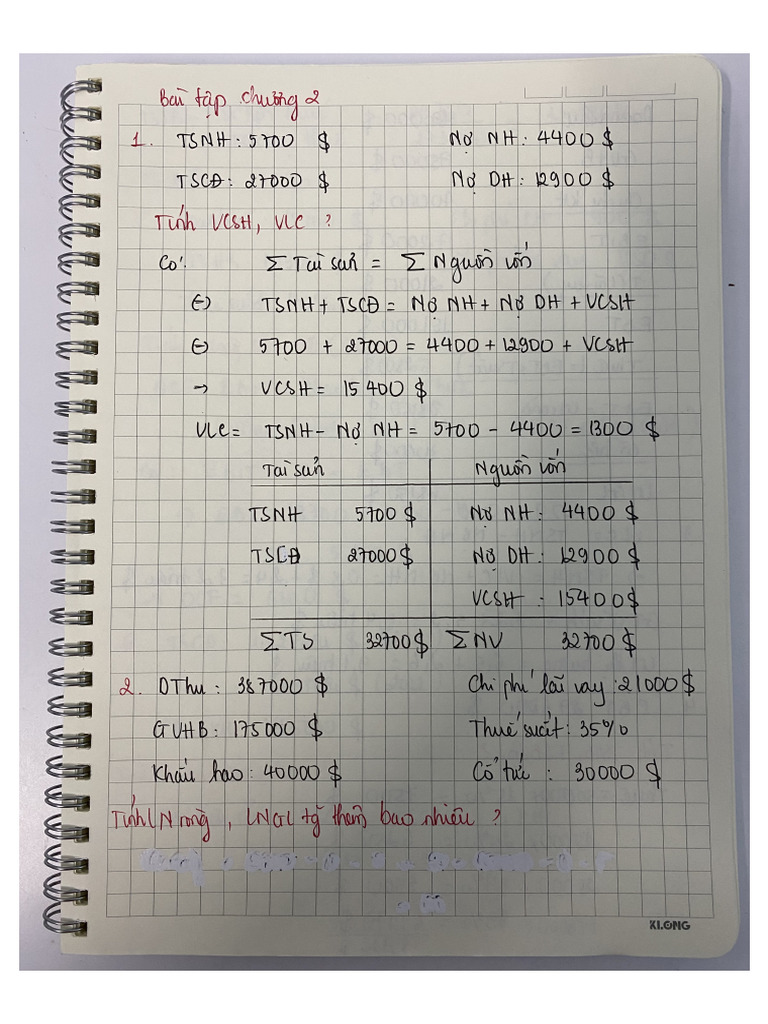 Bài tập chương 2
1. TSNH: 5700 $ Nợ NH: 4400 $
TSCĐ: 27000 $ Nợ DH: 12900 $
Tính VCSH, VLC ?
Có: Σ Tài sản = Σ Nguồn vốn
(=) TSNH + TSCĐ = Nợ NH + Nợ DH + VCSH
(=) 5700 + 27000 = 4400 + 12900 + VCSH
→ VCSH = 15400 $
VLC = TSNH - Nợ NH = 5700 - 4400 = 1300 $
Tài sản Nguồn vốn
TSNH 5700 $ Nợ NH: 4400 $
TSCĐ 27000 $ Nợ DH: 12900 $
VCSH: 15400 $
ΣTS 32700 $ ΣNV 32700 $
2. DThu: 387000 $ Chi phí lãi vay: 21000 $
GVHB: 175000 $ Thuế suất: 35%
Khấu hao: 40000 $ Cổ tức: 30000 $
Tính LN ròng, LNGL tg thêm bao nhiêu ?
KLONG